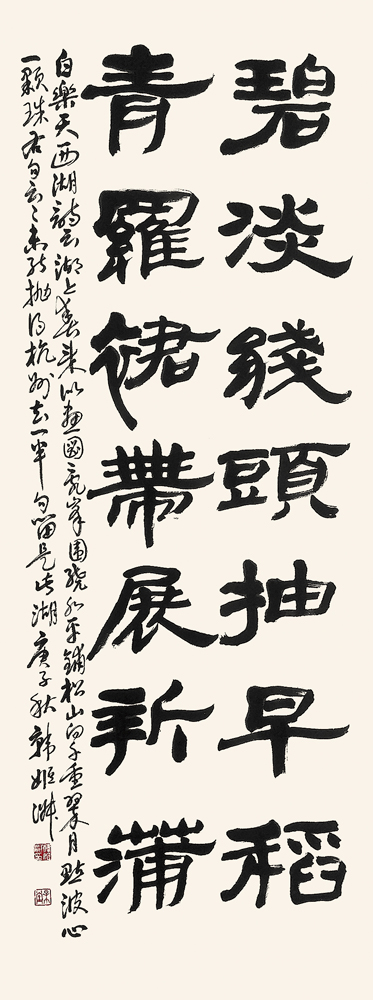 碧淡綫頭抽早稻
青羅裙帶展新蒲
白樂天西湖詩云湖上春來似畫圖亂峯圍繞水平鋪松山面千重翠月點波心
一顆珠右句云云未能抛得杭州去一半勾留是此湖庚子秋韓姬